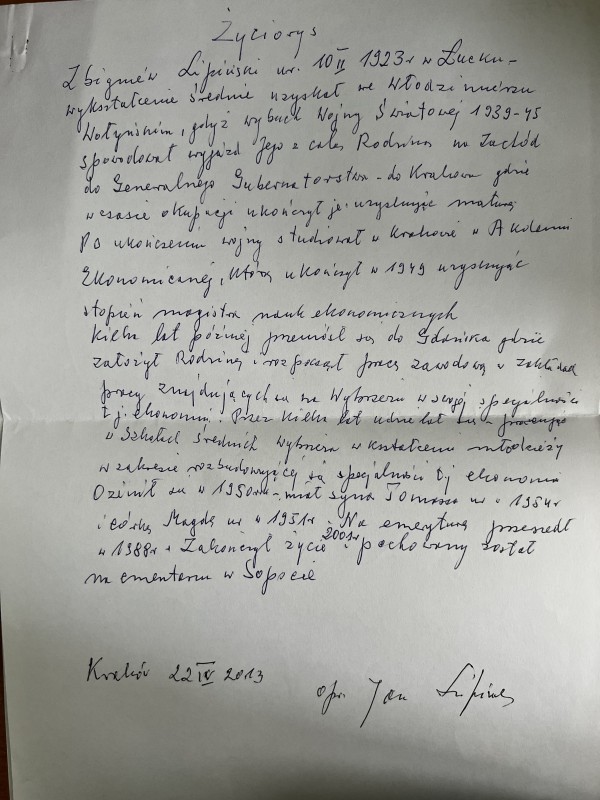 Życiorys
Zbigniew Lipiński ur. 10 II 1923r w Łucku -
wykształcenie średnie uzyskał we Włodzimierzu
Wołyńskim, gdyż wybuch Wojny Światowej 1939-45
spowodował wyjazd Jego z całą Rodziną na Zachód
do Generalnego Gubernatorstwa - do Krakowa gdzie
w czasie okupacji ukończył je uzyskując maturę
Po ukończeniu wojny studiował w Krakowie w Akademii
Ekonomicznej, którą ukończył w 1949 uzyskując
stopień magistra nauk ekonomicznych
Kilka lat później przeniósł się do Gdańska gdzie
założył Rodzinę i rozpoczął pracę zawodową w zakładach
pracy znajdujących się na Wybrzeżu w swojej specjalności
t.j. ekonomii. Przez kilka lat udzielał się - pracując
w Szkołach Średnich Wybrzeża w kształceniu młodzieży
w zakresie rozbudowującej się specjalności t.j ekonomia
Ożenił się w 1950 miał syna Tomasza ur w 1954r
i córkę Magdę ur w 1951r. Na emeryturę przeszedł
w 1988r. Zakończył życie 2001r i pochowany został
na cmentarzu w Sopocie
Kraków 22 IV 2013
opr. Jan Lipiński